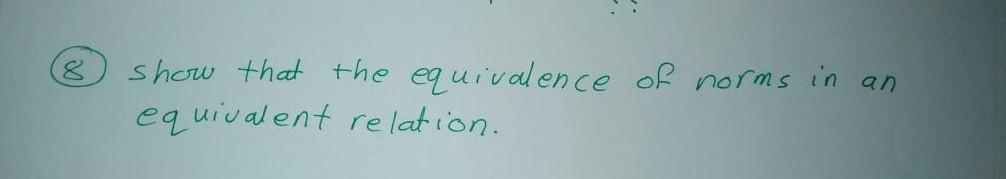 ⑧ show that the equivalence of norms in an
equivalent relation.